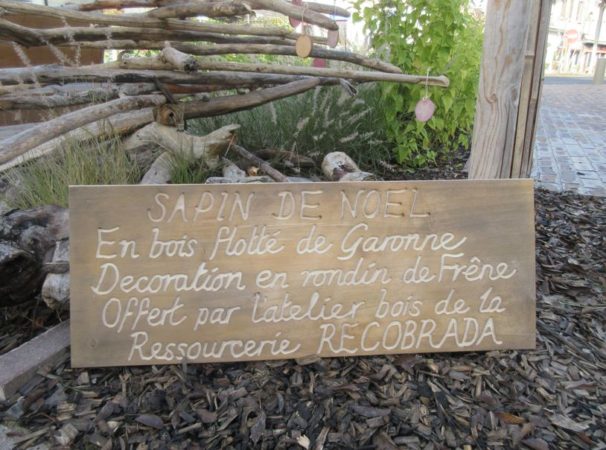 SAPIN DE NOEL
En bois flotté de Garonne
Decoration en rondin de Frêne
Offert par l'atelier bois de la
Ressourcerie RECOBRADA